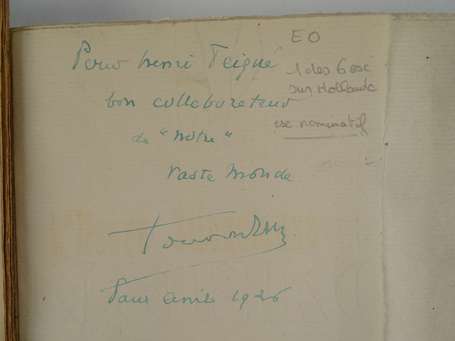 Pour Henri Teigné
bon collaborateur
de "notre"
Vaste Monde
Paris avril 1926
EO
1 des 6 ex
sur Hollande
ex nominatif